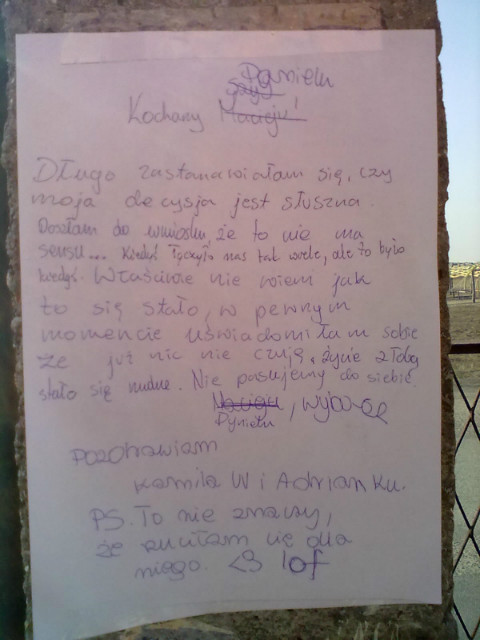 Pynieku
Kochany Macieju!
Długo zastanawiałam się, czy
moja decysja jest słuszna.
Doszłam do wniosku, że to nie ma
sensu... kiedyś łączyło nas tak wiele, ale to było
kiedyś. Właściwie nie wiem jak
to się stało, w pewnym
momencie uświadomiłam sobie
że już nic nie czuję, życie z Tobą
stało się nudne. Nie pasujemy do siebie
Macieju, wybacz
Pynieku
Pozdrawiam
Kamila W i Adrian Ku.
PS. To nie znaczy,
że rzuciłam cię dla
niego. <3 lof